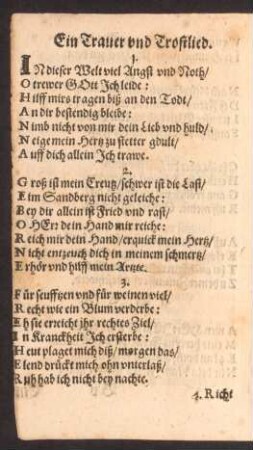 Ein Trauer vnd Trostlied.
1.
IN dieser Welt viel Angst vnd Noth/
O trewer GOtt Ich leide:
Hilff mirs tragen biß an den Todt/
An dir bestendig bleibe:
Nimb nicht von mir dein Lieb vnd huld/
Neige mein Hertz zu stetter gdult/
Auff dich allein Ich trawe.
2.
Groß ist mein Creutz/schwer ist die Last/
Eim Sandberg nicht geleiche:
Bey dir allein ist Fried vnd rast/
O HErr dein Hand mir reiche:
Reich mir dein Hand/erquick mein Hertz/
Nicht entzeuch dich in meinem schmertz/
Erhör vnd hilff mein Artzte.
3.
Für seufftzen vnd für weinen viel/
Recht wie ein Blum verderbe:
Eh sie erreicht ihr rechtes Ziel/
In Kranckheit Ich ersterbe:
Heut plaget mich diß/morgen das/
Elend drückt mich ohn vnterlaß/
Ruh hab ich nicht bey nachte.
4. Richt